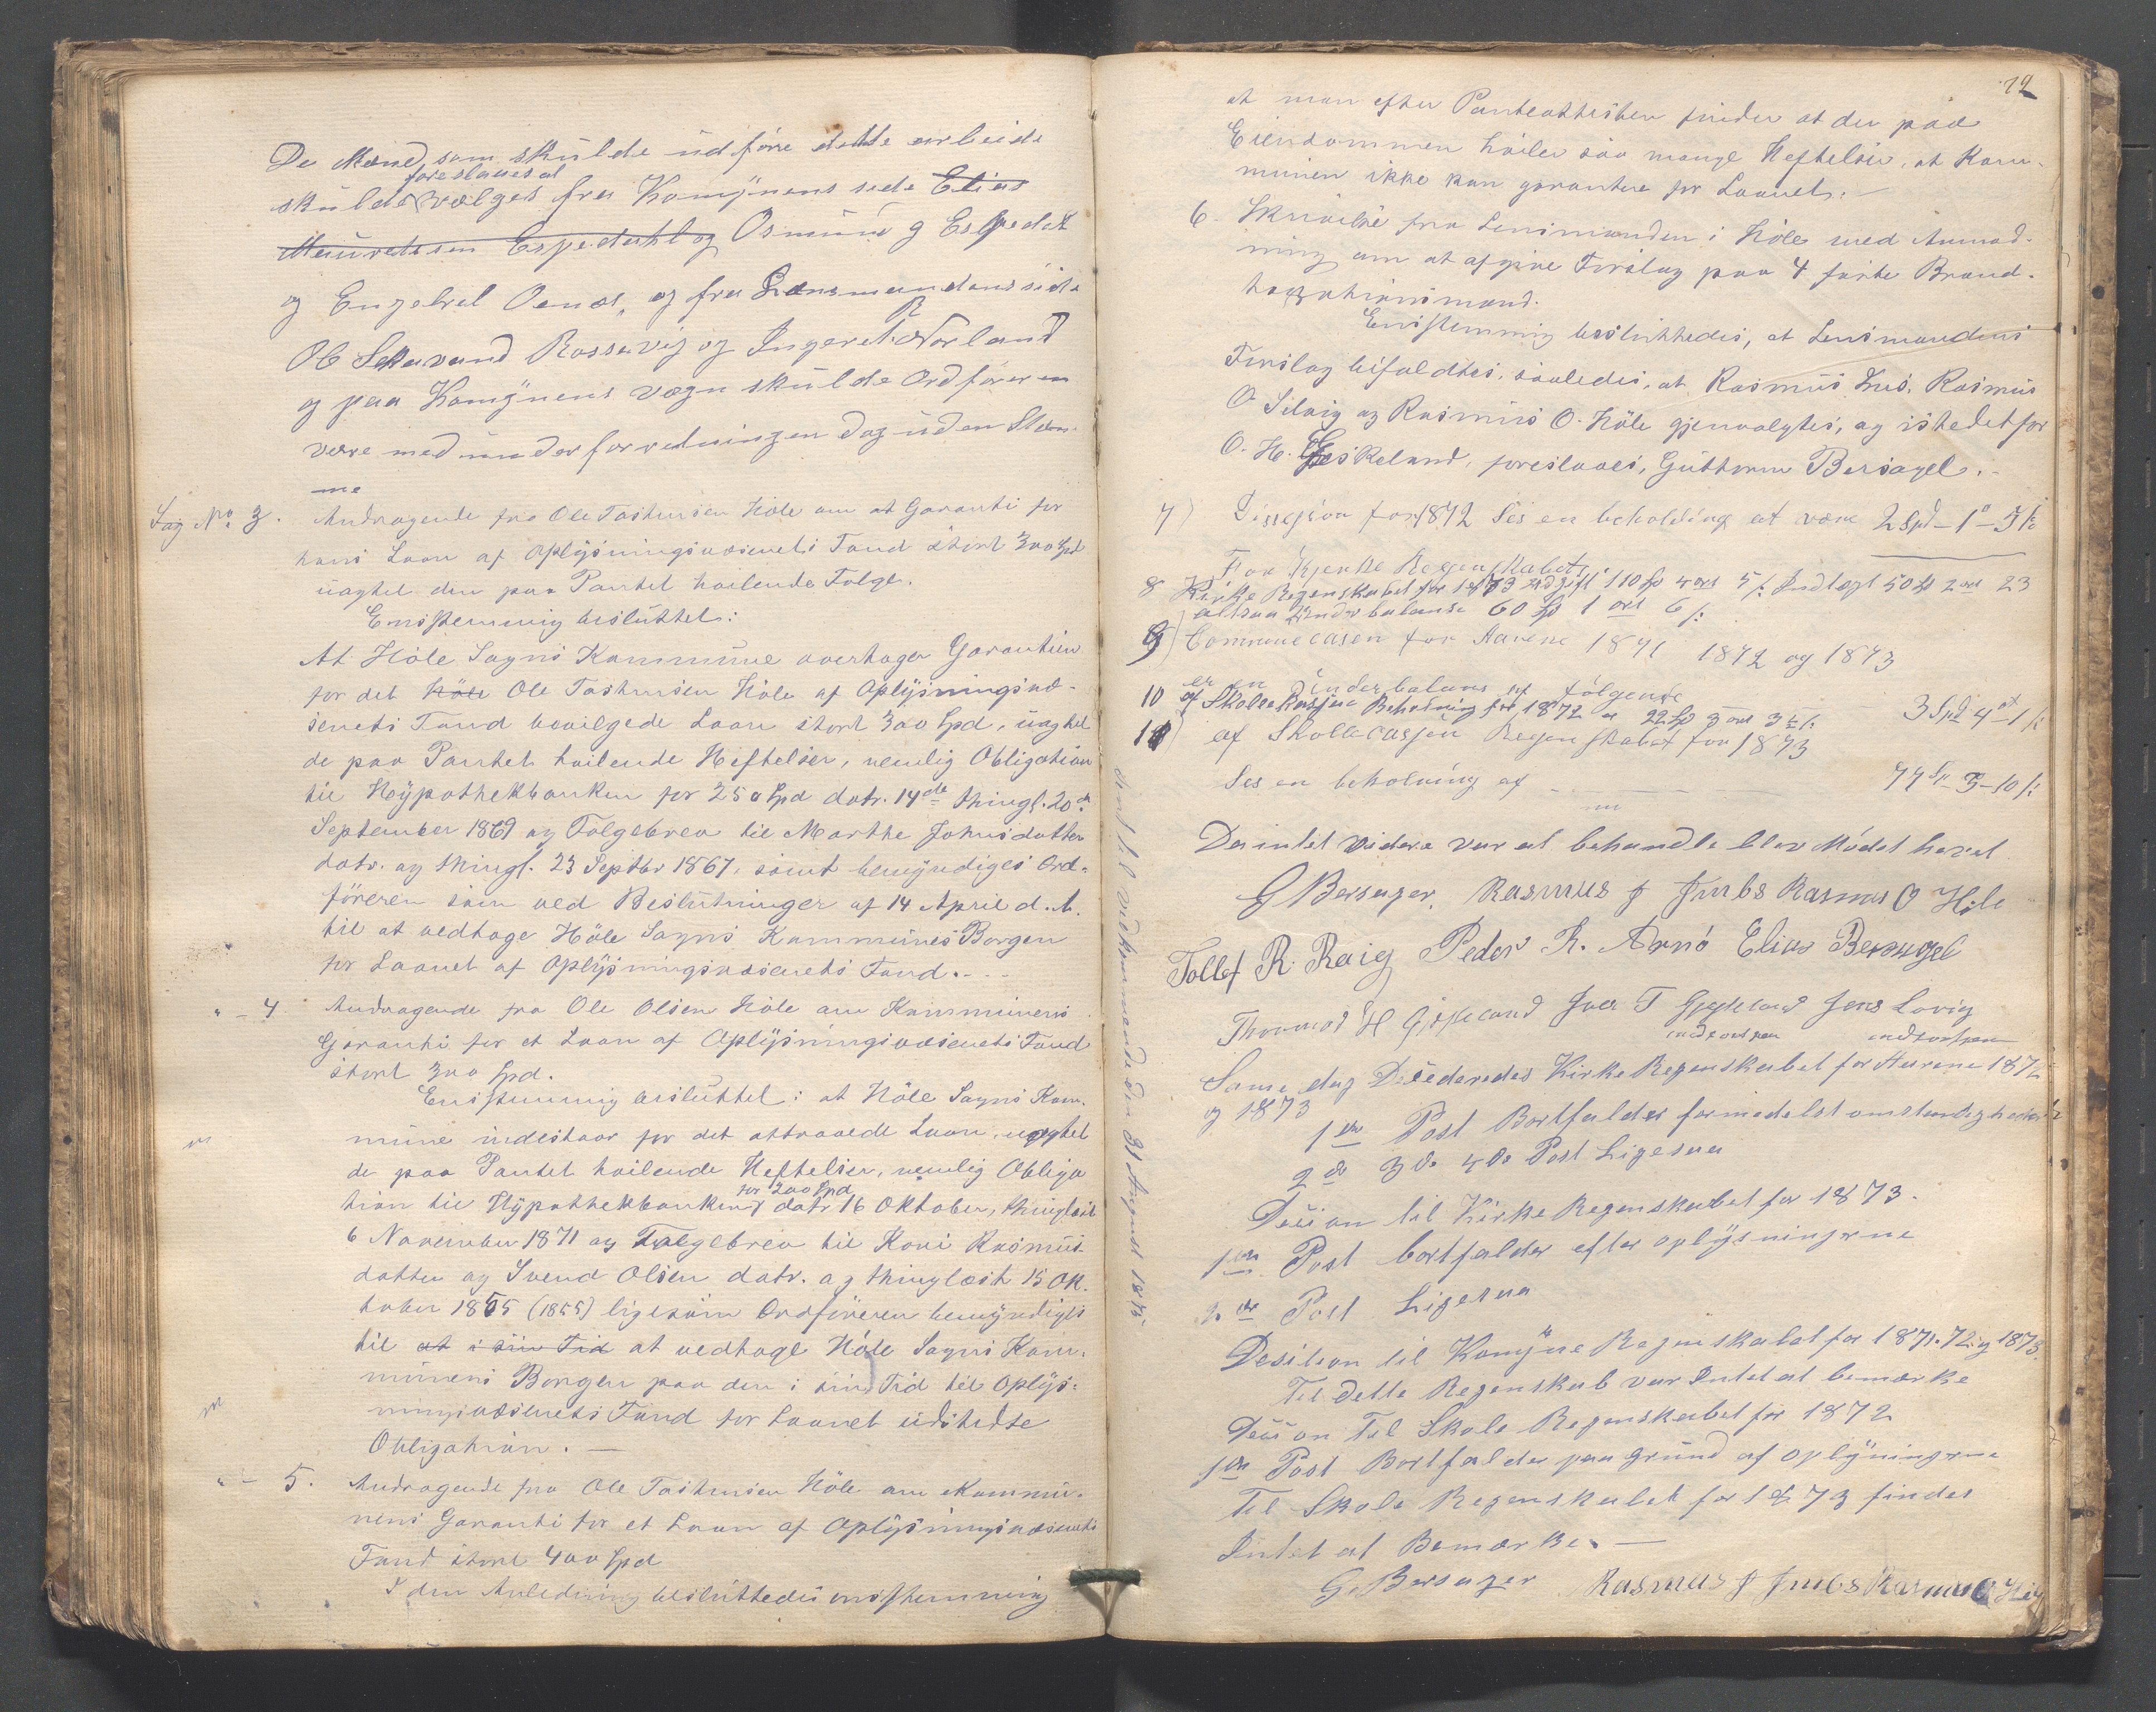 De Mænd som skulde udföre dette arbeide
foreslaaes at
skulde vælges fra Komynens side Elias
Mauretssen Espedahl og Osmund g Espedal
og Engelvel Oenæs, og fra Lænsmandens side
Ob Sellevand Rossavig og Ingeret R Norland
og paa Komynens vægn skulde Ordföreren
være med under forretningen dog uden Stem-
me
Sag No. 3. Andragende fra Ole Tostensen Höle om at Garanti for
hans Laan af Oplysningsvæsenets Fond stort 300 Spd
uagtet den paa Pantet hvilende Folge.
Enstemmig besluttet:
At Höle Sogns Kommune overtager Garantien
for det Höle Ole Tostensen Höle af Oplysningsvæ-
senets Fond bevilgede Laan stort 300 Spd, uagtet
de paa Pantet hvilende Heftelser, nemlig Obligation
til Hypothekbanken for 250 Spd datr. 14de thingl. 20de
September 1869 og Folgebrev til Marthe Johnsdatter
datr. og thingl. 23 Septbr 1867, samt bemyndiges Ord-
föreren som ved Beslutninger af 14 April d. A.
til at vedtage Höle Sogns Kommunes Borgen
for Laanet af Oplysningsvæsenets Fond. - -
" - 4 Andragende fra Ole Olsen Höle om Kommunens
Garanti for et Laan af Oplysningsvæsenets Fond
stort 300 Spd.
Enstemmig besluttet: at Höle Sogns Kom-
mune indestaar for det attraaede Laan, uagtet
de paa Pantet hvilende Heftelser, nemlig Obliga
for 200 Spd
tion til Hypothekbanken, datr 16 Oktober, thinglæst
6 November 1871 og Folgebrev til Kari Rasmus-
datter og Svend Olsen datr. og thinglæst 15 Ok-
tober 1855 (1855) ligesom Ordföreren bemyndiges
til at i sin Tid at vedtage Höle Sogns Kom-
munens Borgen paa den i sin Tid til Oplys-
ningsvæsenets Fond for Laanet udstedte
Obligation. —
" - 5. Andragende fra Ole Tostensen Höle om Kommu-
nens Garanti for et Laan af Oplysningsvæsenets
Fond stort 400 Spd
I den Anledning besluttedes enstemmig
at man efter Panteattesten finder at der paa
Eiendommen hviler saa mange Heftelser, at Kom-
munen ikke kan garantere for Laanet. —
6 Skrivelse fra Lensmanden i Höle med Anmod-
ning om at afgive Forslag paa 4 faste Brand-
taxationsmænd.
Enstemmig besluttedes, at Lensmandens
Forslag bifaldtes, saaledes, at Rasmus Ims, Rasmus
O Selvig og Rasmus O. Höle gjenvalgtes, og istedetfor
O. H. Gjeskeland, foreslaaes, Guttorm Bersagel. -
7) for 1872 Ses en beholding at være 2 Spd - 1 o - 5 s
8 Kirke Regenskabet for 1873 udgift 110 Sp 4 ort 5 s Indtægt 50 Sp 2 ort 23
altsaa Underbalanse 60 Sp 1 ort 6 s
9) Commune casen for Aarene 1871 1872 og 1873
er en Underbalans af følgende 3 Spd 4 ort 1 s
10 af Skolekassen Beholning for 1872 er 22 Sp 3 ort 3 s
11) af Skolle cassen Regenskabet for 1873
Ses en beholning af - - - 77 Sp - 3 - 10 s
Da intet videre var at behandle blev Mödet hævet
G Bersagel. Rasmus J Imbs Rasmus O Höle
Tollef R. Raig Peder R. Arnö Elias Bersagel
Thormod H Gjeskeland Iver T Gjeskeland Jens Lovig
Same dag Desederedes Kirke Regenskabet for Aarene 1872
og 1873
1ste Post Bortfalder formedelst omstendigheder
2de 3de 4de Post Ligesaa
Desion til Kirke Regenskabet for 1873.
1ste Post bortfalder efter oplysningerne
2de Post Ligesaa
Desision til Komyne Regenskabet for 1871. 72. og 1873.
Til dette Regenskab var Intet at bemærke
Desion Til Skole Regenskabet for 1872
1ste Post Bortfalder paa grund af oplysningerne
Til Skole Regenskabet for 1873 findes
Intet at Bemærke. —
G. Bersagel Rasmus J Imbs Rasmus O Höle